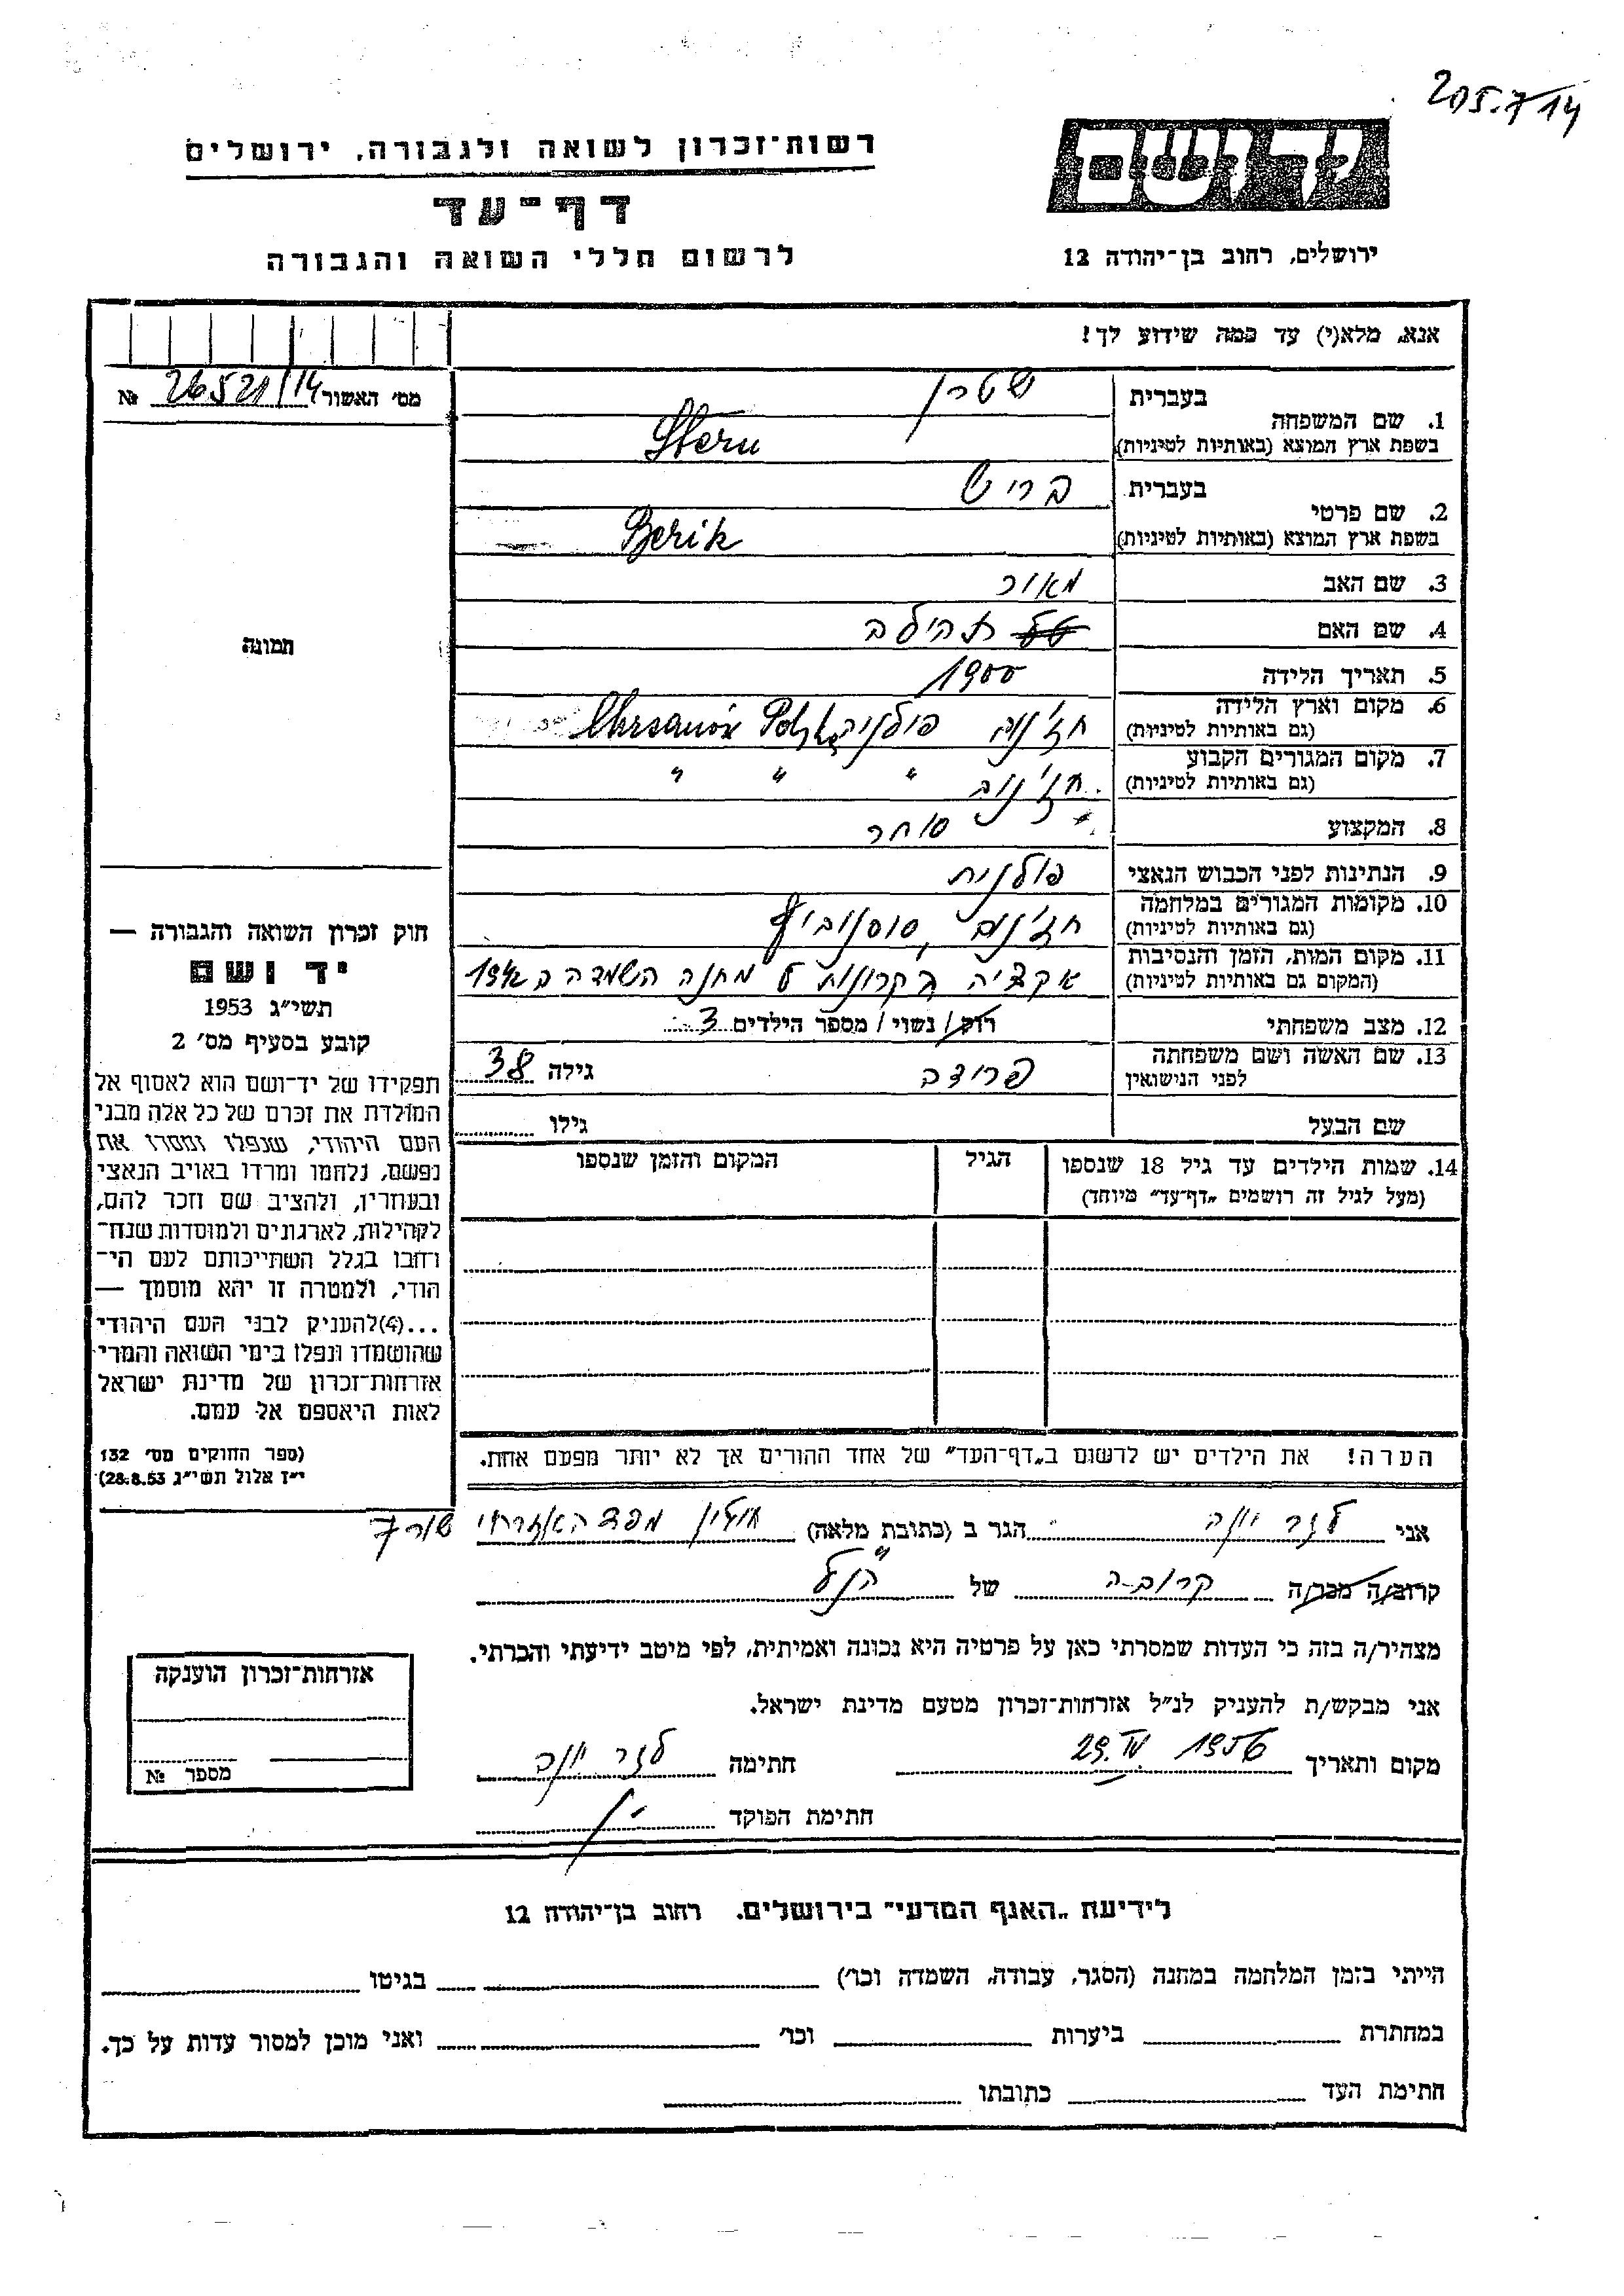 205.714
יד ושם
רשות־זכרון לשואה ולגבורה, ירושלים
דף־עד
לרשום חללי השואה והגבורה
ירושלים, רחוב בן־יהודה 12
אנא, מלא(י) עד כמה שידוע לך!
מס׳ האשור 26521/14 №
בעברית שטרן
1. שם המשפחה
בשפת ארץ המוצא (באותיות לטיניות) Stern
בעברית
2. שם פרטי
בשפת ארץ המוצא (באותיות לטיניות) Berik
3. שם האב מאור
4. שם האם
5. תאריך הלידה 1900
6. מקום וארץ הלידה פולניה Chrsanów Polska
(גם באותיות לטיניות)
7. מקום המגורים הקבוע " " "
(גם באותיות לטיניות)
8. המקצוע סוחר
9. הנתינות לפני הכבוש הנאצי פולנית
10. מקומות המגורים במלחמה
(גם באותיות לטיניות)
11. מקום המות, הזמן והנסיבות אקציה בקרונות למחנה השמדה ב 1942
(המקום גם באותיות לטיניות)
12. מצב משפחתי רוק/ נשוי/ מספר הילדים 3
13. שם האשה ושם משפחתה גילה 38
לפני הנישואין
שם הבעל גילו
14. שמות הילדים עד גיל 18 שנספו הגיל המקום והזמן שנספו
(מעל לגיל זה רושמים „דף־עד״ מיוחד)
הערה! את הילדים יש לרשום ב„דף־העד״ של אחד ההורים אך לא יותר מפעם אחת.
תמונה
חוק זכרון השואה והגבורה —
יד ושם
תשי״ג 1953
קובע בסעיף מס׳ 2
תפקידו של יד־ושם הוא לאסוף אל
המולדת את זכרם של כל אלה מבני
העם היהודי, שנפלו ומסרו את
נפשם, נלחמו ומרדו באויב הנאצי
ובעוזריו, ולהציב שם וזכר להם,
לקהילות, לארגונים ולמוסדות שנח־
רבו בגלל השתייכותם לעם הי־
הודי, ולמטרה זו יהא מוסמך —
...(4)להעניק לבני העם היהודי
שהושמדו ונפלו בימי השואה והמרי
אזרחות־זכרון של מדינת ישראל
לאות היאספם אל עמם.
(ספר החוקים מס׳ 132
י״ז אלול תשי״ג 28.8.53)
אני לזר יונה הגר ב (כתובת מלאה) חולון
קרוב/ה מכר/ה קרובה של הנ״ל
מצהיר/ה בזה כי העדות שמסרתי כאן על פרטיה היא נכונה ואמיתית, לפי מיטב ידיעתי והכרתי.
אני מבקש/ת להעניק לנ״ל אזרחות־זכרון מטעם מדינת ישראל.
מקום ותאריך 29.IV 1956 חתימה לזר יונה
חתימת הפוקד
אזרחות־זכרון הוענקה
מספר №
לידיעת „האגף המדעי״ בירושלים. רחוב בן־יהודה 12
הייתי בזמן המלחמה במחנה (הסגר, עבודה, השמדה וכו׳) בגיטו
במחתרת ביערות וכו׳ ואני מוכן למסור עדות על כך.
חתימת העד כתובתו